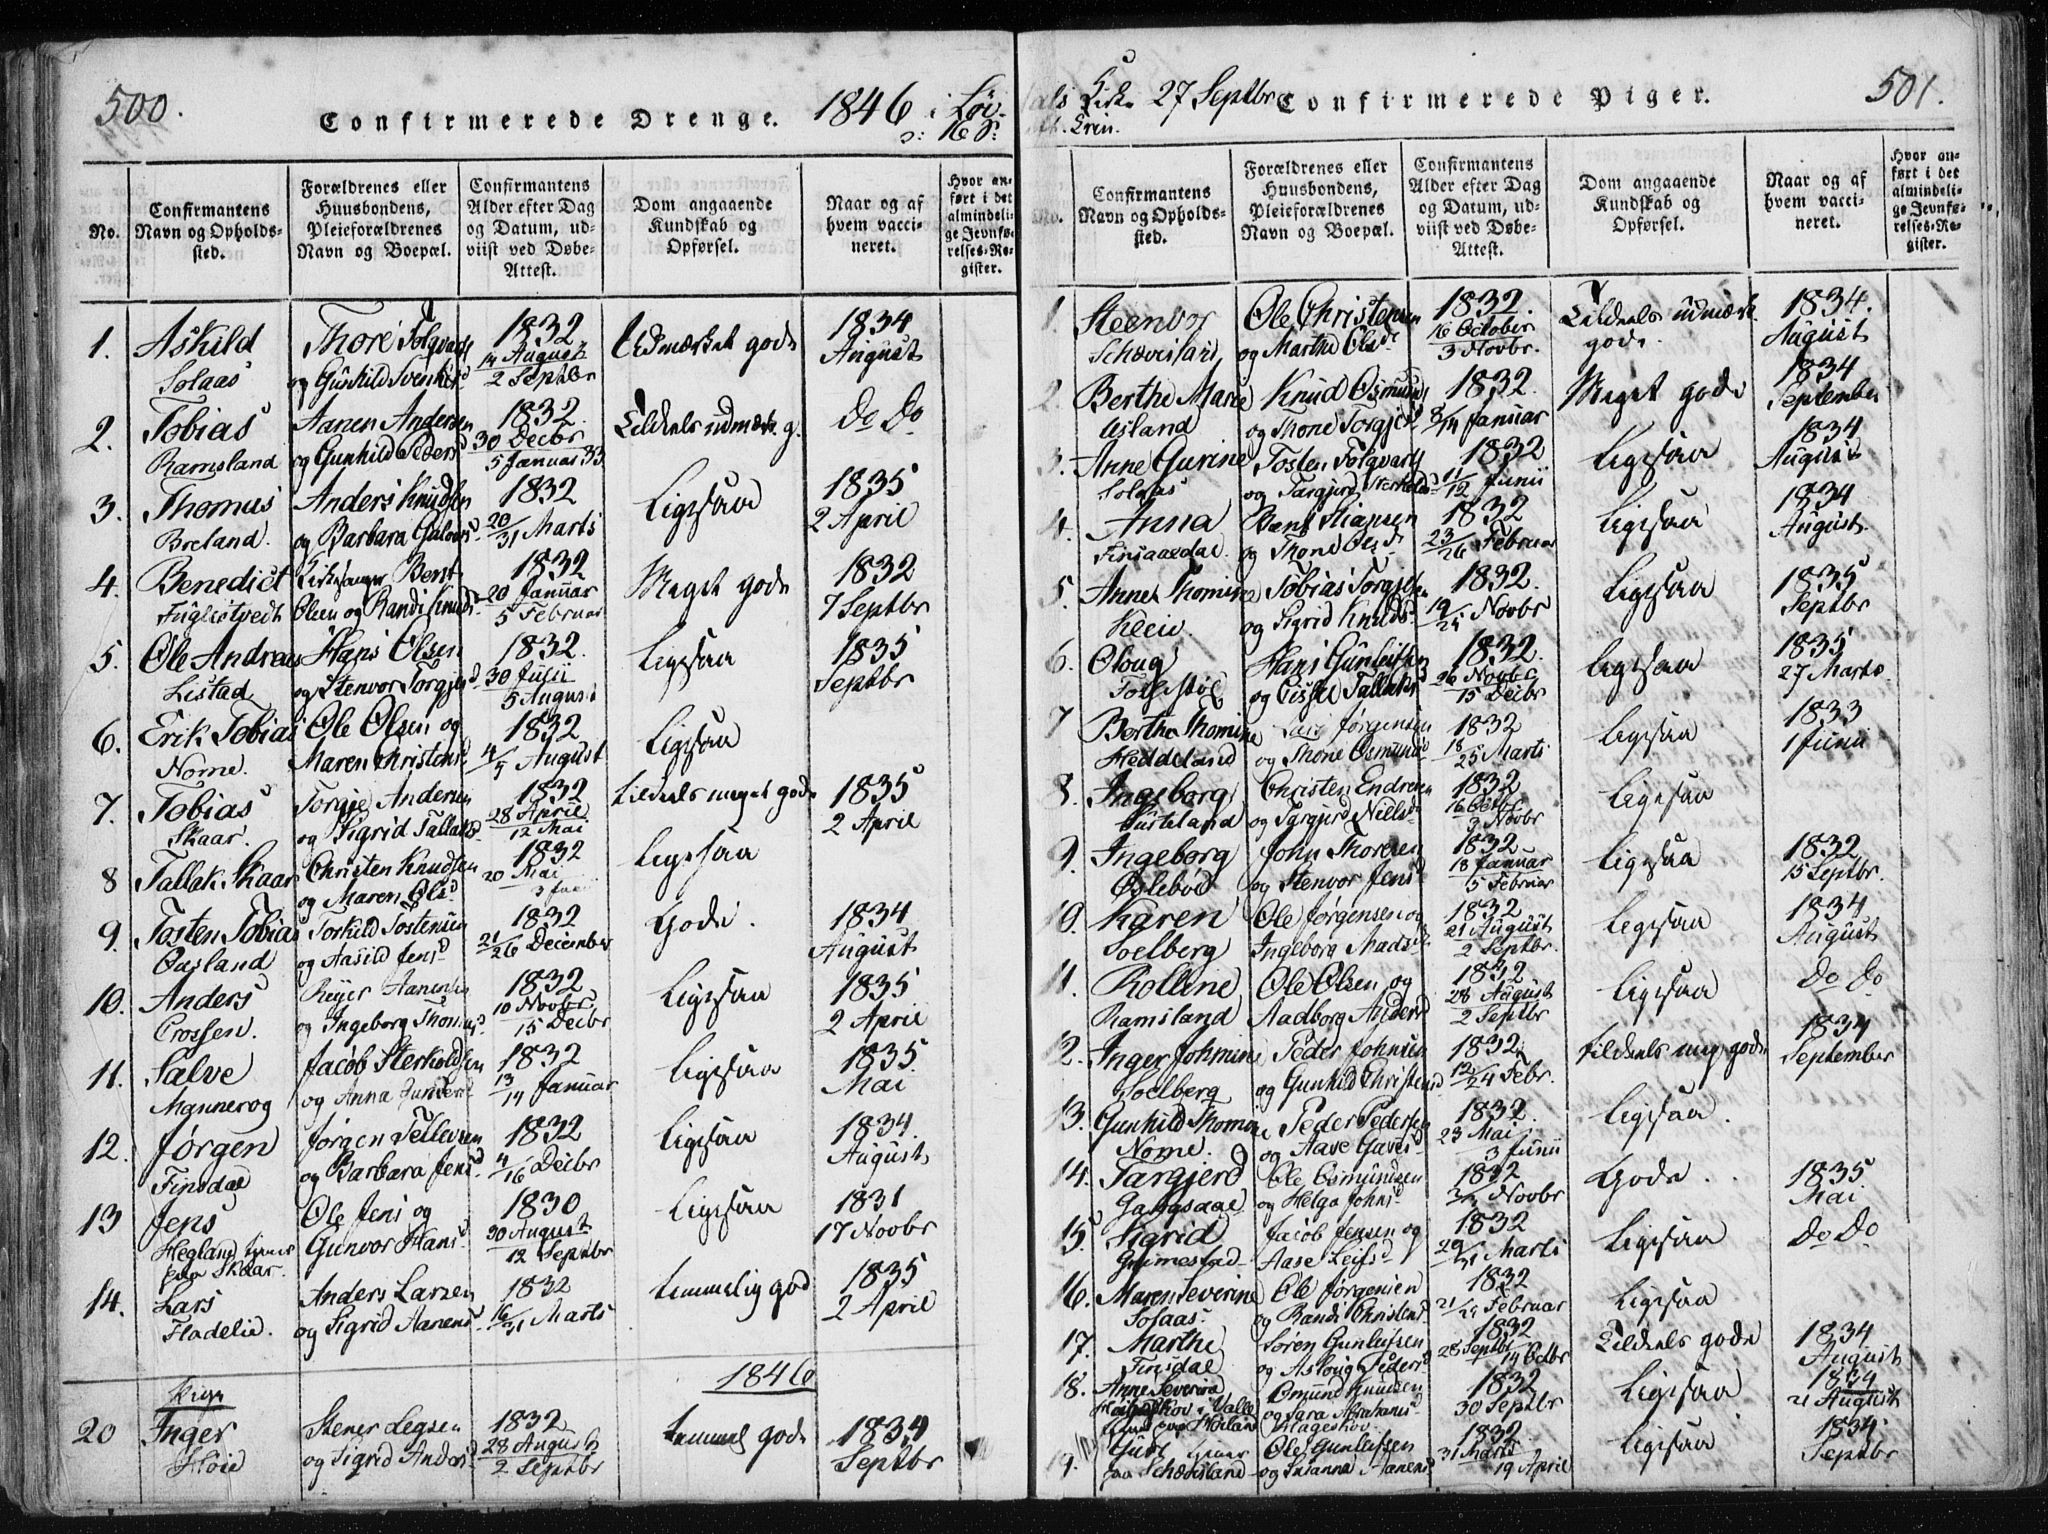 500.
Confirmerede Drenge.
1846 i Løv-
No.
Confirmantens Navn og Opholds-sted.
Forældrenes eller Huusbondens, Pleieforældrenes Navn og Boepæl.
Confirmantens Alder efter Dag og Datum, ud-viist ved Døbe-Attest.
Dom angaaende Kundskab og Opførsel.
Naar og af hvem vacci-neret.
Hvor an-ført i det almindeli-ge Jevnfø-relses-Re-gister.
1. Askild Thore 1832 Udmærket gode 1834
Solaas og Gunhild 14 August 2 Septbr August
2. Tobias Aanen Andersen 1832 Tildeels udmærk. g. Do Do
Ramsland og Gunhild Peders 30 Decbr 5 Januar 33
3. Thomas Anders Knudsen 1832 Ligesaa 1835
Breland. og Barbara 20/31 Marts 2 April
4. Benedict Kirkesanger Bent 1832 Meget gode 1832
Fuglestvedt Olsen og Randi Knuds 20 Januar 5 Februar 7 Septbr
5. Ole Andreas Hans Olsen 1832. Ligesaa 1835
Listad og Stenvor Torgjus 30 Julii 5 August Septbr
6. Erik Tobias Ole Olsen og 1832 Ligesaa
Nome. Maren Christens 4/5 August
7. Tobias Torgje Andersen 1832 Tildeels meget gode 1835
Skaar. og Sigrid Tallaks 28 April 12 Mai 2 April
8 Tallak Skaar Christen Knudsen 1832 Ligesaa
og Maren Ols 20 Mai 3
9. Tosten Tobias Torkild Tostensen 1832 Gode. 1834
og Aasild Jens 21/26 December August
10. Anders Reyer Aanensen 1832 Ligesaa 1835
Crossen. og Ingeborg Thomas 10 Novbr 15 Decbr 2 April
11. Salve Jacob Sterkoldsen 1832 Ligesaa 1835
Mannerog og Anna 13/14 Januar Mai
12. Jørgen Jørgen Tellevsen 1832 Ligesaa 1834
Finsdal og Barbara Jens 4/16 Decbr August
13 Jens Ole Jens og 1830 Ligesaa 1831
Hegland tjener paa Skaar. Gunvor Hans 30 August 12 Septbr 17 Novbr
14. Lars Anders Larsen 1832 temmelig god 1835
Fladelie. og Sigrid Aanens 16/31 Marts 2 April
Pige
1846
20 Inger Stener 1832 temmel. gode 1834
Høie og Sigrid Anders 28 August 2 Septbr Septbr
Kirke 27 Septbr
Confirmerede Piger.
501.
No.
Confirmantens Navn og Opholds-sted.
Forældrenes eller Huusbondens, Pleieforældrenes Navn og Boepæl.
Confirmantens Alder efter Dag og Datum, ud-viist ved Døbe-Attest.
Dom angaaende Kundskab og Opførsel.
Naar og af hvem vacci-neret.
Hvor an-ført i det almindeli-ge Jevnfø-relses-Re-gister.
1. Steenvor Ole Christensen 1832. Tildeels udmærk. 1834.
og Marthe Olsd 16 October 3 Novbr. gode. August
2. Berthe Marie Knud Osmunds 1832. Meget gode 1834
Usland og Thone Torgjus 8/14 Januar September
3. Anne Gurine Tosten 1832 Ligesaa 1834
Solaas og Targjerd 11/12 Junii August
4. Anna Bent Hansen 1832 Ligesaa 1834
Finsaasdal og Thone Olsd 23/26 Februar August.
5. Anne Thomine Tobias Torgjesen 1832. Ligesaa 1835
Kleiv. og Sigrid Knuds 19/25 Novbr Septbr
6. Oloug Hans Gunleifsen 1832. Ligesaa 1835
og Cissel Tallaks 26 Novbr 15 Decbr 27 Marts
7 Berthe Thomine Lars Jørgensen 1832 Ligesaa 1833
Heddeland og Thone Osmunds 18/25 Marts 1 Junii
8. Ingeborg Christen Endresen 1832 Ligesaa
og Targjerd Niels 16 Octbr 3 Novbr
9. Ingeborg John Thoresen 1832 Ligesaa 1832
Øslebøe og Stenvor Jens 18 Januar 5 Februar 15 Septbr.
10. Karen Ole Jørgensen og 1832 Ligesaa 1834
Soelberg Ingeborg Mads 21 August 2 Septbr. August
11. Rolline Ole Olsen og 1832 Ligesaa Do Do
Ramsland Aadborg Anders 28 August 2 Septbr
12. Inger Johmine Peder Johnsen 1832. tildeels meg. gode 1834
Soelberg og Gunhild Christens 12/24 Febr. September
13. Gunhild Thomine Peder Pedersen 1832. Ligesaa.
Nome. og Aase 23 Mai 3 Junii
14. Targjerd Ole Osmundsen 1832 Gode. 1835
Gangsaae og Helga Johns Novbr Mai
15. Sigrid Jacob Jensen og 1832 Ligesaa Do Do
Grimestad Aase Leifs 29/31 Marts
16. Maren Severine Ole Jørgensen 1832 Ligesaa
Solaas. Randi Christens 21/25 Februar
17. Marthe Søren Gunleifsen 1832 Tildeels gode 1834
Finsdal og Asloug Peders 28 Septbr 14 Octbr August
18. Anne Severine Omund Knudsen 1832 Ligesaa 1834
og Sara Abrahams 30 Septbr 21 August
19. Guri tjener Ole Gunleifsen 1832. Ligesaa 1834
og Susanna Aanens 31 Marts 19 April Septbr